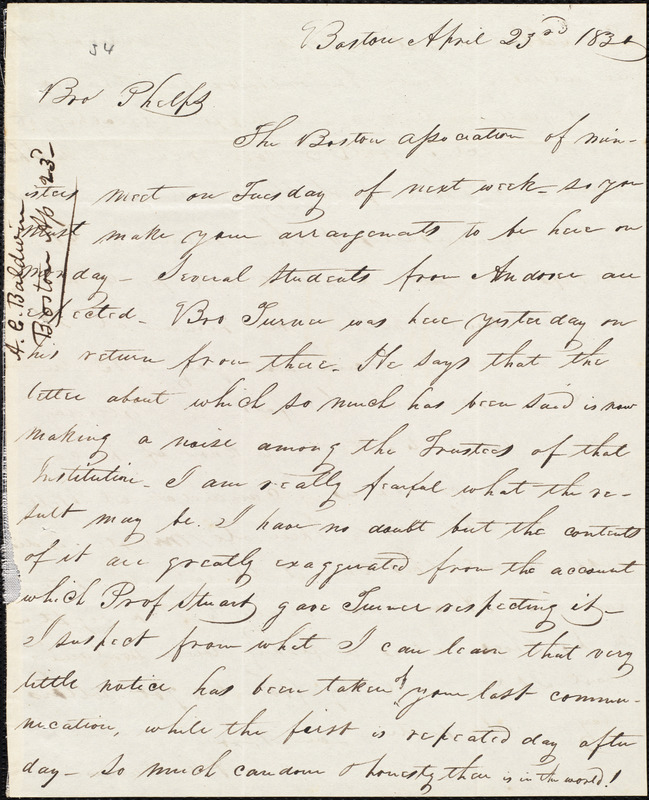 34
Boston April 23rd 1830
Bro Phelps
The Boston association of min-
isters meet on Tuesday of next week - so you
must make your arrangements to be here on
monday - Several Students from Andover are
expected - Bro Turner was here yesterday on
his return from there. He says that the
letter about which so much has been said is now
making a noise among the Trustees of that
Institution - I am really fearful what the re-
sult may be. I have no doubt but the contents
of it are greatly exaggerated from the account
which Prof Stuart gave Turner respecting it -
I suspect from what I can learn that very
little notice has been taken of your last commu-
nication, while the first is repeated day after
day - so much candour & honesty there is in the world!
A. E. Baldwin
Boston Ap 23d